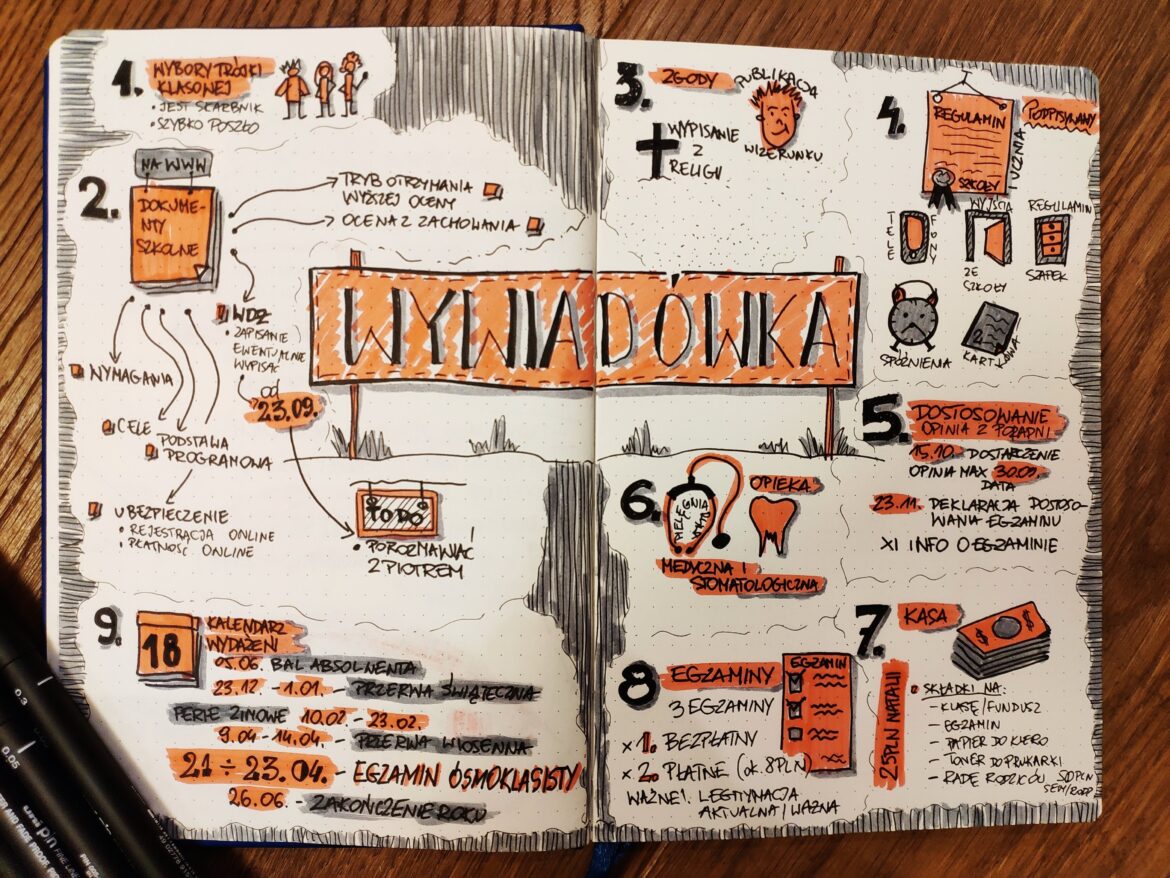 1.
WYBORY TRÓJKI
KLASOWEJ
• JEST SKARBNIK
• SZYBKO POSZŁO
2.
NA WWW
DOKUME-
NTY
SZKOLNE
TRYB OTRZYMANIA
WYŻSZEJ OCENY
OCENA Z ZACHOWANIA
WDŻ
• ZAPISANIE
EWENTUALNIE
WYPISAĆ
od
23.09.
WYMAGANIA
CELE
PODSTAWA
PROGRAMOWA
UBEZPIECZENIE
• REJESTRACJA ONLINE
• PŁATNOŚĆ ONLINE
TODO
• POROZMAWIAĆ
Z PIOTREM
WYWIADÓWKA
3.
ZGODY
PUBLIKACJA
WIZERUNKU
+ WYPISANIE
Z
RELIGII
4.
REGULAMIN
SZKOŁY
UCZNIA
PODPISYWANY
TELE
FONY
WYJŚCIA
ZE
SZKOŁY
REGULAMIN
SZAFEK
SPÓŹNIENIA
KARTKÓWKA
5.
DOSTOSOWANIE
OPINIA Z PORADNI
15.10. DOSTARCZENIE
OPINIA MAX 30.09.
DATA
23.11. DEKLARACJA DOSTOSO-
WANIA EGZAMINU
XI INFO O EGZAMINIE
6.
PIELĘGNIARKA
OPIEKA
MEDYCZNA I
STOMATOLOGICZNA
7.
KASA
25PLN NATALII
SKŁADKI NA:
- KLASĘ/FUNDUSZ
- EGZAMIN
- PAPIER DO KSERO
- TONER DO DRUKARKI
- RADĘ RODZICÓW 50PLN
8
EGZAMINY
EGZAMIN
3 EGZAMINY
x 1. BEZPŁATNY
x 2. PŁATNE (ok. 8PLN)
WAŻNE! LEGITYMACJA
AKTUALNA/WAŻNA
9.
18
KALENDARZ
WYDAŻENI
05.06. BAL ABSOLWENTA
23.12 - 1.01. - PRZERWA ŚWIĄTECZNA
FERIE ZIMOWE 10.02 - 23.02.
9.04 - 14.04. - PRZERWA WIOSENNA
21 ÷ 23.04. - EGZAMIN ÓSMOKLASISTY
26.06. - ZAKOŃCZENIE ROKU
0.3
0.05
uni pin